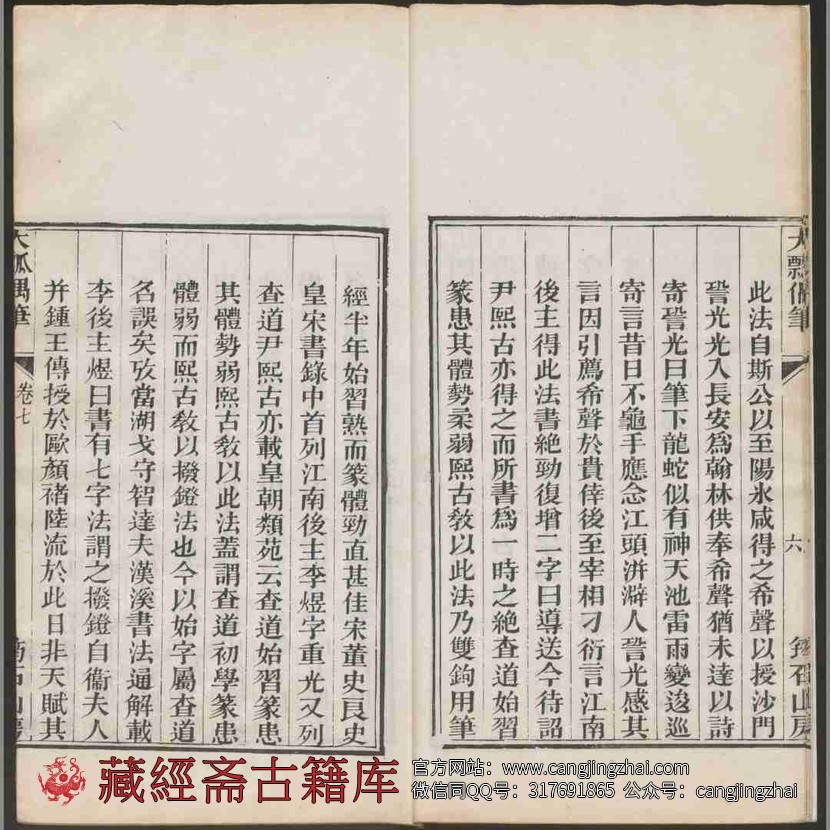 大瓢偶筆
六
筠石山房
此法自斯公以至陽氷咸得之希聲以授沙門
䛒光光入長安爲翰林供奉希聲猶未達以詩
寄䛒光曰筆下龍蛇似有神天池雷雨變逡巡
寄言昔日不龜手應念江頭洴澼人䛒光感其
言因引薦希聲於貴倖後至宰相刁衍言江南
後主得此法書絶勁復增二字曰導送今待詔
尹熙古亦得之而所書爲一時之絶查道始習
篆患其體勢柔弱熙古敎以此法乃雙鉤用筆
經半年始習熟而篆體勁直甚佳宋董史良史
皇宋書錄中首列江南後主李煜字重光又列
查道尹熙古亦載皇朝類苑云查道始習篆患
其體勢弱熙古敎以此法蓋謂查道初學篆患
體弱而熙古敎以撥鐙法也今以始字屬查道
名誤矣攷當湖戈守智達夫漢溪書法通解載
李後主煜曰書有七字法謂之撥鐙自衞夫人
并鍾王傳授於歐顏褚陸流於此日非天賦其
大瓢偶筆
卷七
筠石山房
藏經斋古籍库
官方网站：www.cangjingzhai.com
微信同QQ号：317691865 公众号：cangjingzhai